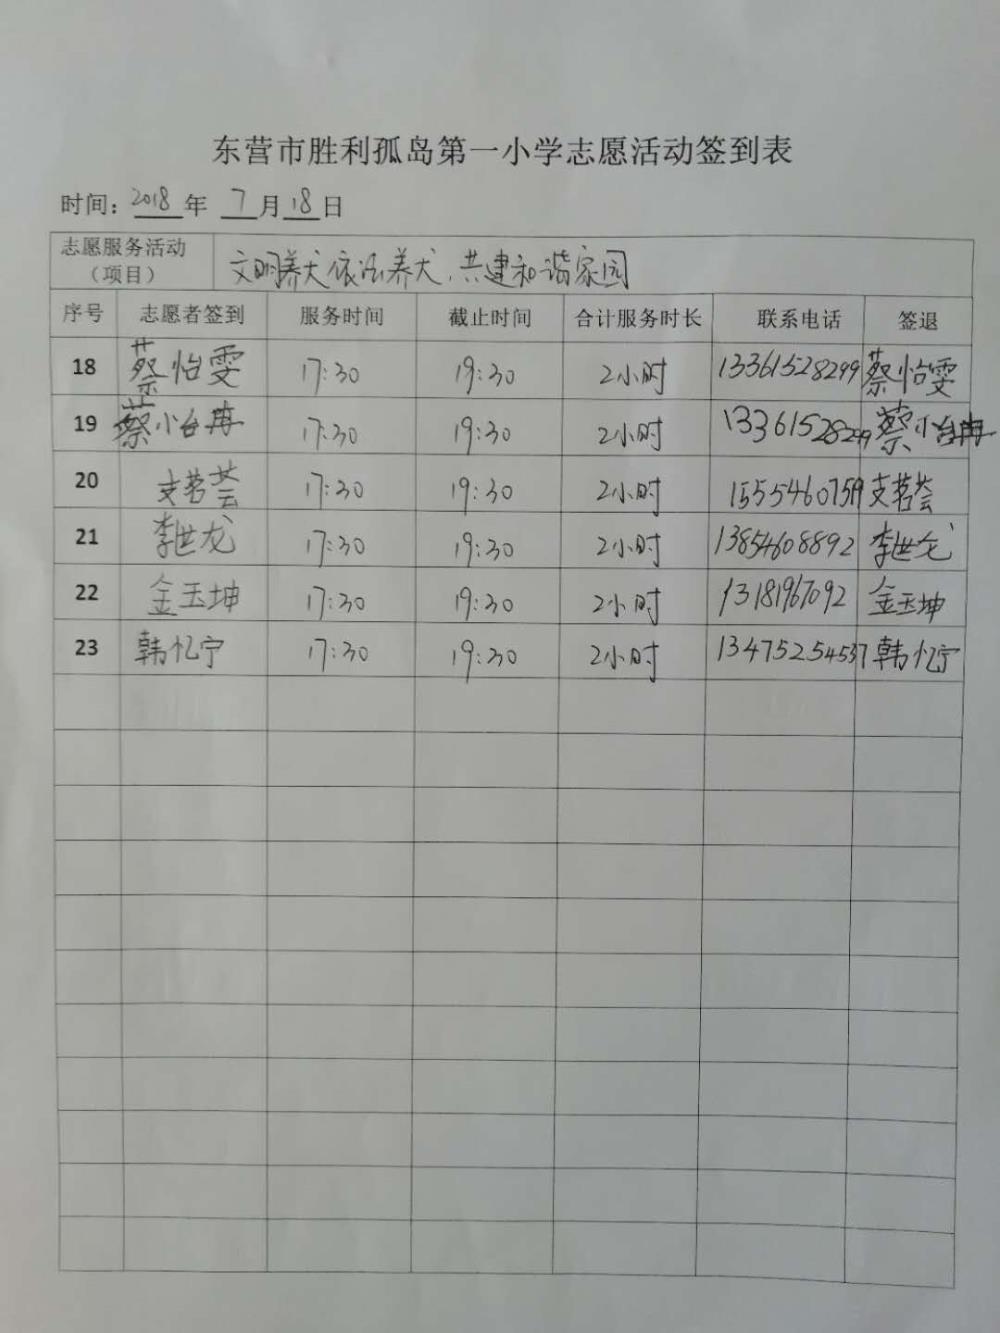 东营市胜利孤岛第一小学志愿活动签到表
时间：2018年 7月18日
志愿服务活动（项目） 文明养犬依法养犬，共建和谐家园
序号 志愿者签到 服务时间 截止时间 合计服务时长 联系电话 签退
18 蔡怡雯 17:30 19:30 2小时 13361528299 蔡怡雯
19 蔡怡冉 17:30 19:30 2小时 13361528299 蔡怡冉
20 支茗荟 17:30 19:30 2小时 支茗荟
21 李世龙 17:30 19:30 2小时 13854608892 李世龙
22 金玉坤 17:30 19:30 2小时 13181967092 金玉坤
23 韩忆宁 17:30 19:30 2小时 13475254537 韩忆宁